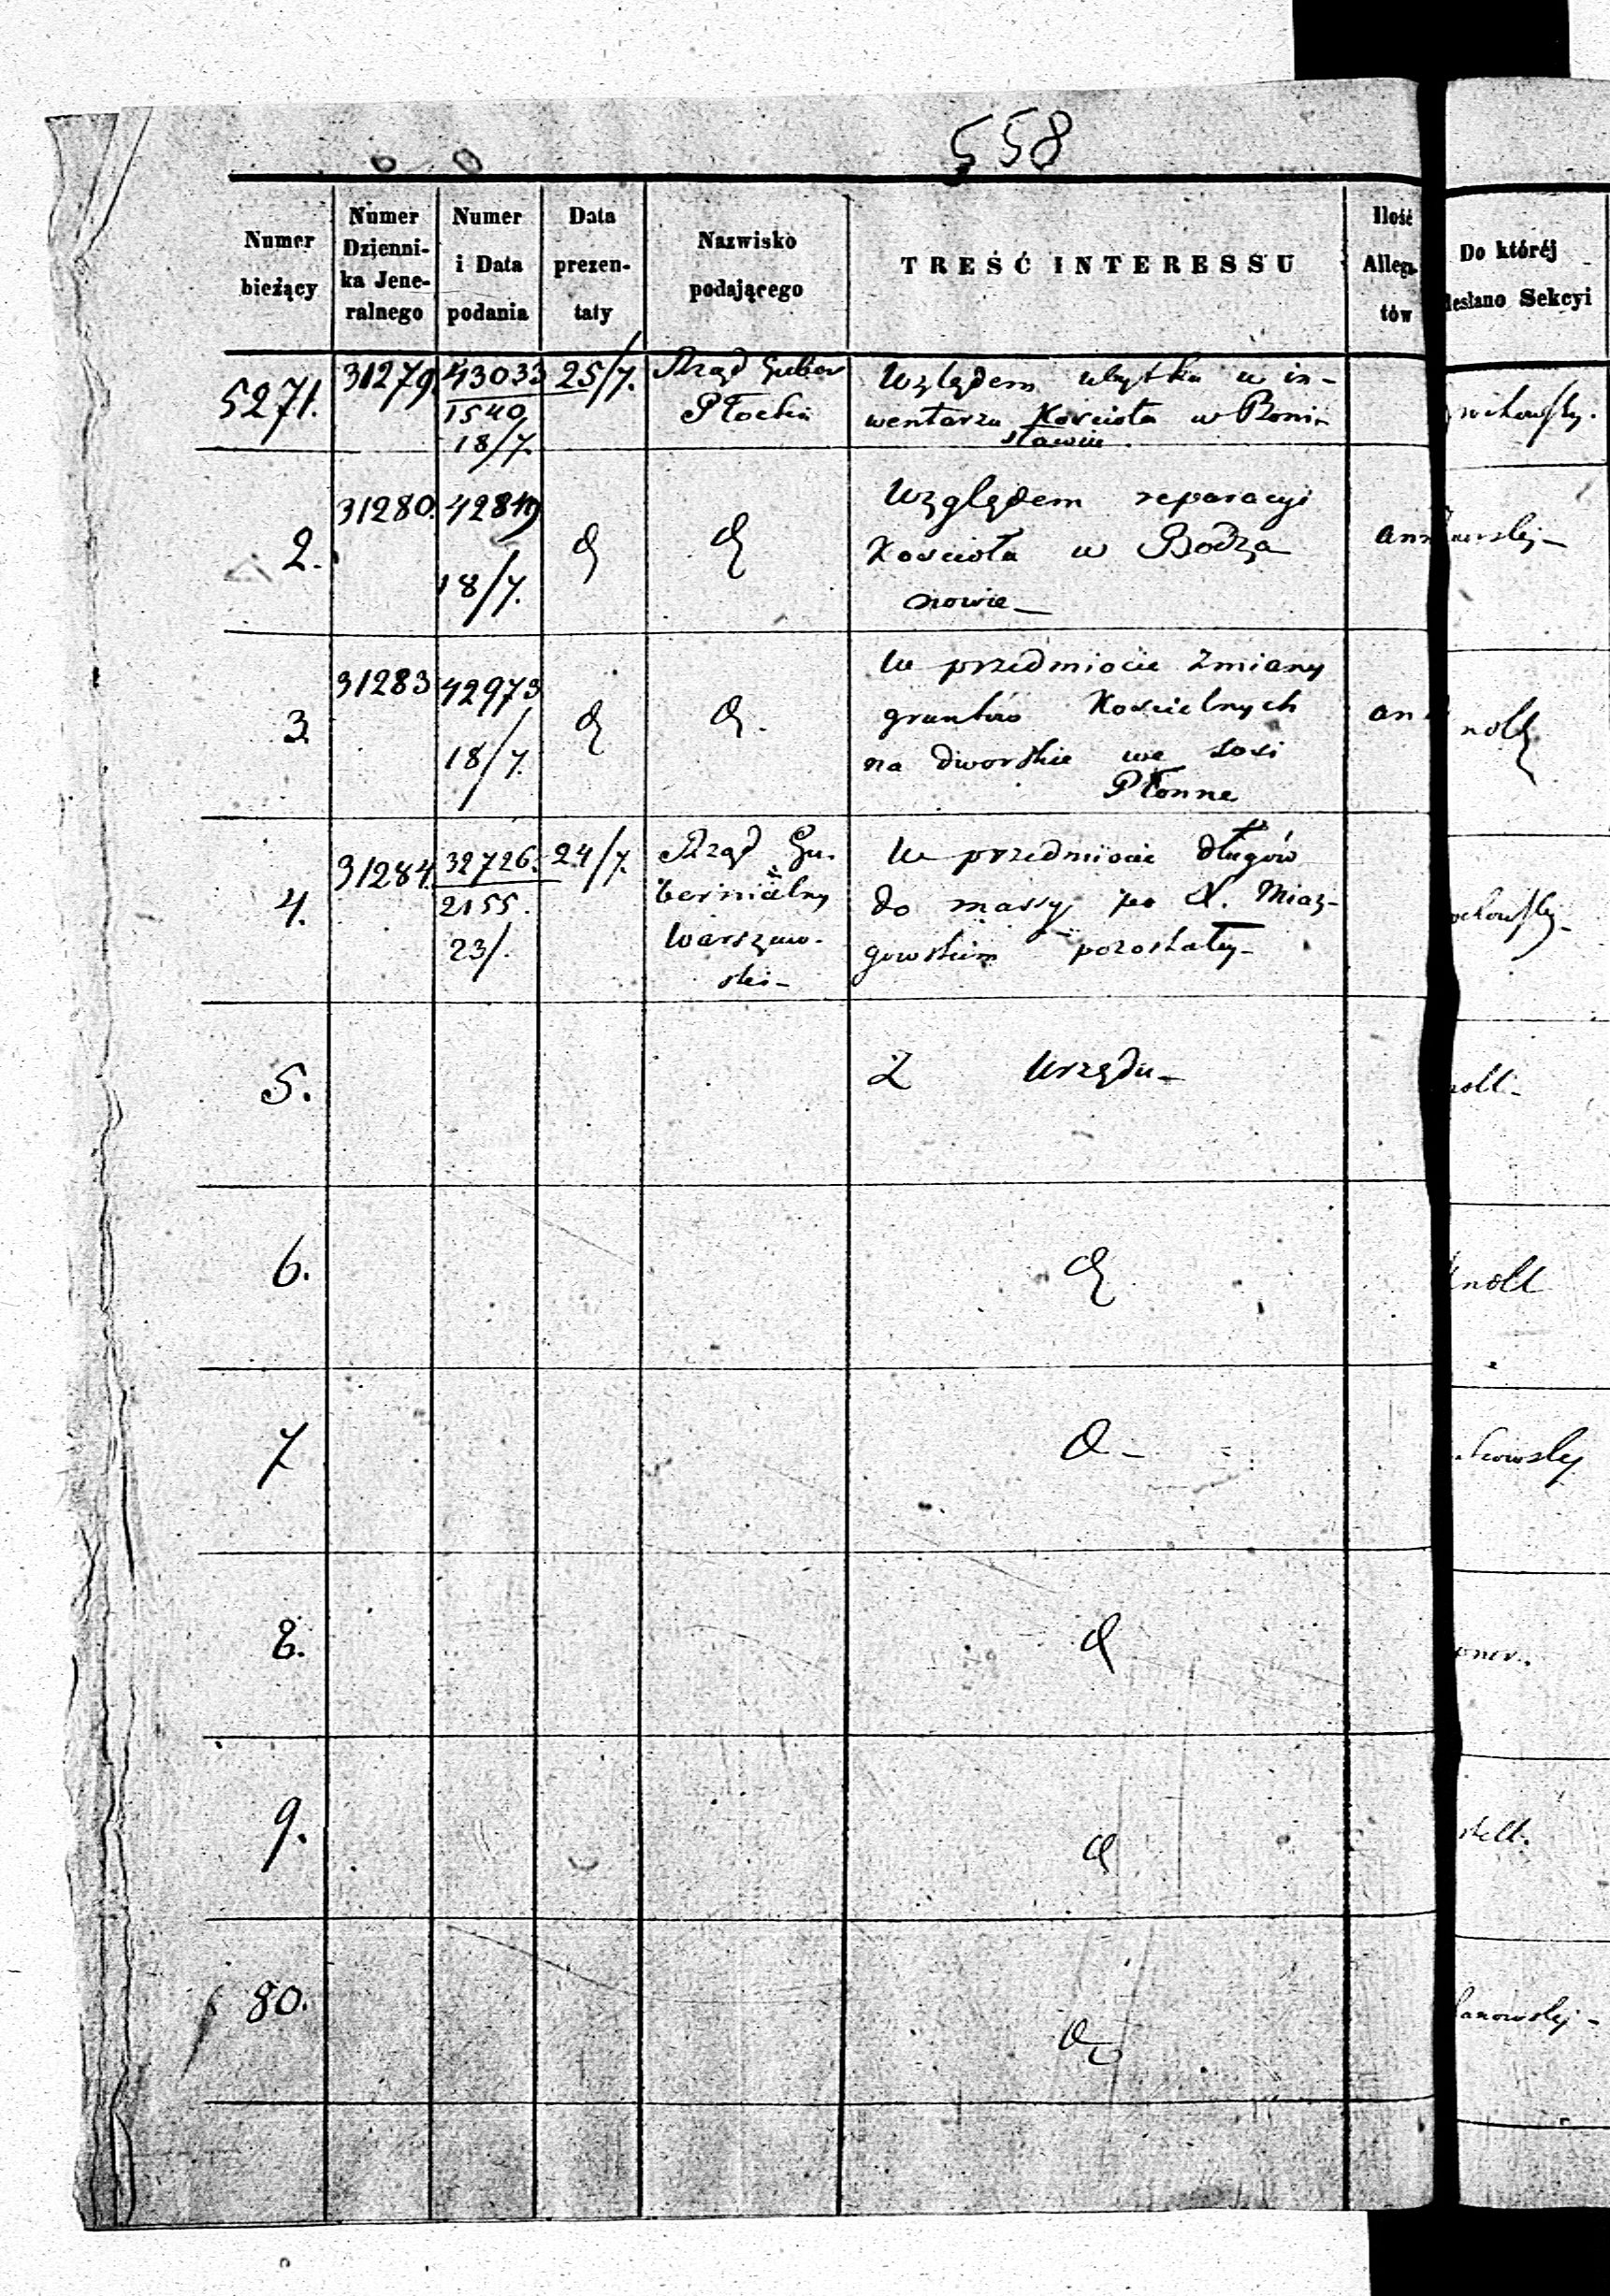 558
Numer bieżący
Numer Dzienni-ka Jene-ralnego
Numer i Data podania
Data prezen-taty
Nazwisko podającego
TREŚĆ INTERESSU
Ilość Allega-tów
Do któréj
Sekcyi
5271.
31279.
43033
1540
18/7.
25/7.
Rząd Guber
Płocki
Względem ubytku w in-
wentarzu Kościoła w Boni-
sławiu.
2.
31280.
42849
18/7.
Względem reparacyi
Kościoła w Bodza
nowie
3.
31283
42973
18/7.
W przedmiocie Zmiany
gruntów Kościelnych
na dworskie we wsi
Płonne
4.
31284.
32726.
2155.
23/.
24/7.
Rząd Gu.
bernialny
Warszaw.
ski-
W przedmiocie długów
do massy po X. Miaz-
gowskim pozostałej-
5.
Z Urzędu-
6.
7
8.
9.
80.